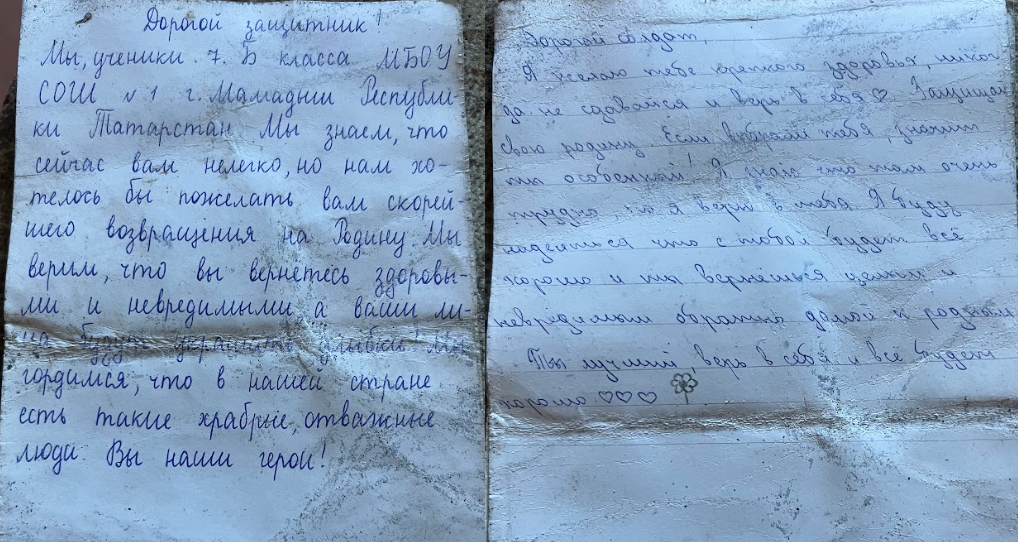 Дорогой защитник!
Мы, ученики 7 Б класса МБОУ
СОШ №1 г. Мамадыш Республи-
ки Татарстан. Мы знаем, что
сейчас вам нелегко, но нам хо-
телось бы пожелать вам скорей-
шего возвращения на Родину. Мы
верим, что вы вернетесь здоровы-
ми и невредимыми а ваши ли-
ца будут украшать улыбки! Мы
гордимся, что в нашей стране
есть такие храбрые, отважные
люди. Вы наши герои!
Дорогой солдат,
Я желаю тебе крепкого здоровья, никог
да не сдавайся и верь в себя♡. Защищай
свою родину. Если выбрали тебя, значит
ты особенный! Я знаю что там очень
трудно, но я верю в тебя. Я буду
надеяться что с тобой будет всё
хорошо и ты вернёшься целым и
невредимым обратно домой к родным
Ты лучший, верь в себя и все будет
хорошо ♡♡♡